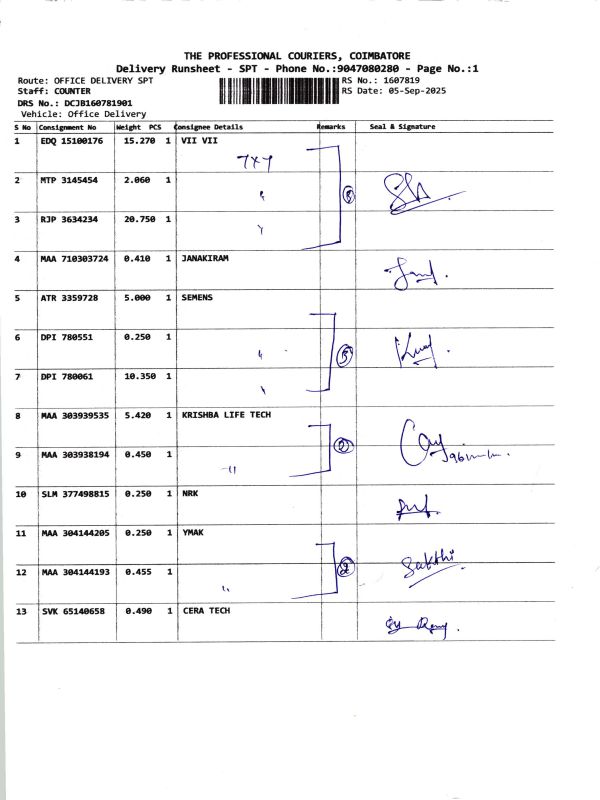 THE PROFESSIONAL COURIERS, COIMBATORE
Delivery Runsheet - SPT - Phone No.:9047080280 - Page No.:1
Route: OFFICE DELIVERY SPT RS No.: 1607819
Staff: COUNTER RS Date: 05-Sep-2025
DRS No.: DCJB160781901
Vehicle: Office Delivery
S No Consignment No Weight PCS Consignee Details Remarks Seal & Signature
1 EDQ 15100176 15.270 1 VII VII
2 MTP 3145454 2.060 1
3 RJP 3634234 20.750 1
4 MAA 710303724 0.410 1 JANAKIRAM
5 ATR 3359728 5.000 1 SEMENS
6 DPI 780551 0.250 1
7 DPI 780061 10.350 1
8 MAA 303939535 5.420 1 KRISHBA LIFE TECH
9 MAA 303938194 0.450 1
10 SLM 377498815 0.250 1 NRK
11 MAA 304144205 0.250 1 YMAK
12 MAA 304144193 0.455 1 Sakthi
13 SVK 65140658 0.490 1 CERA TECH